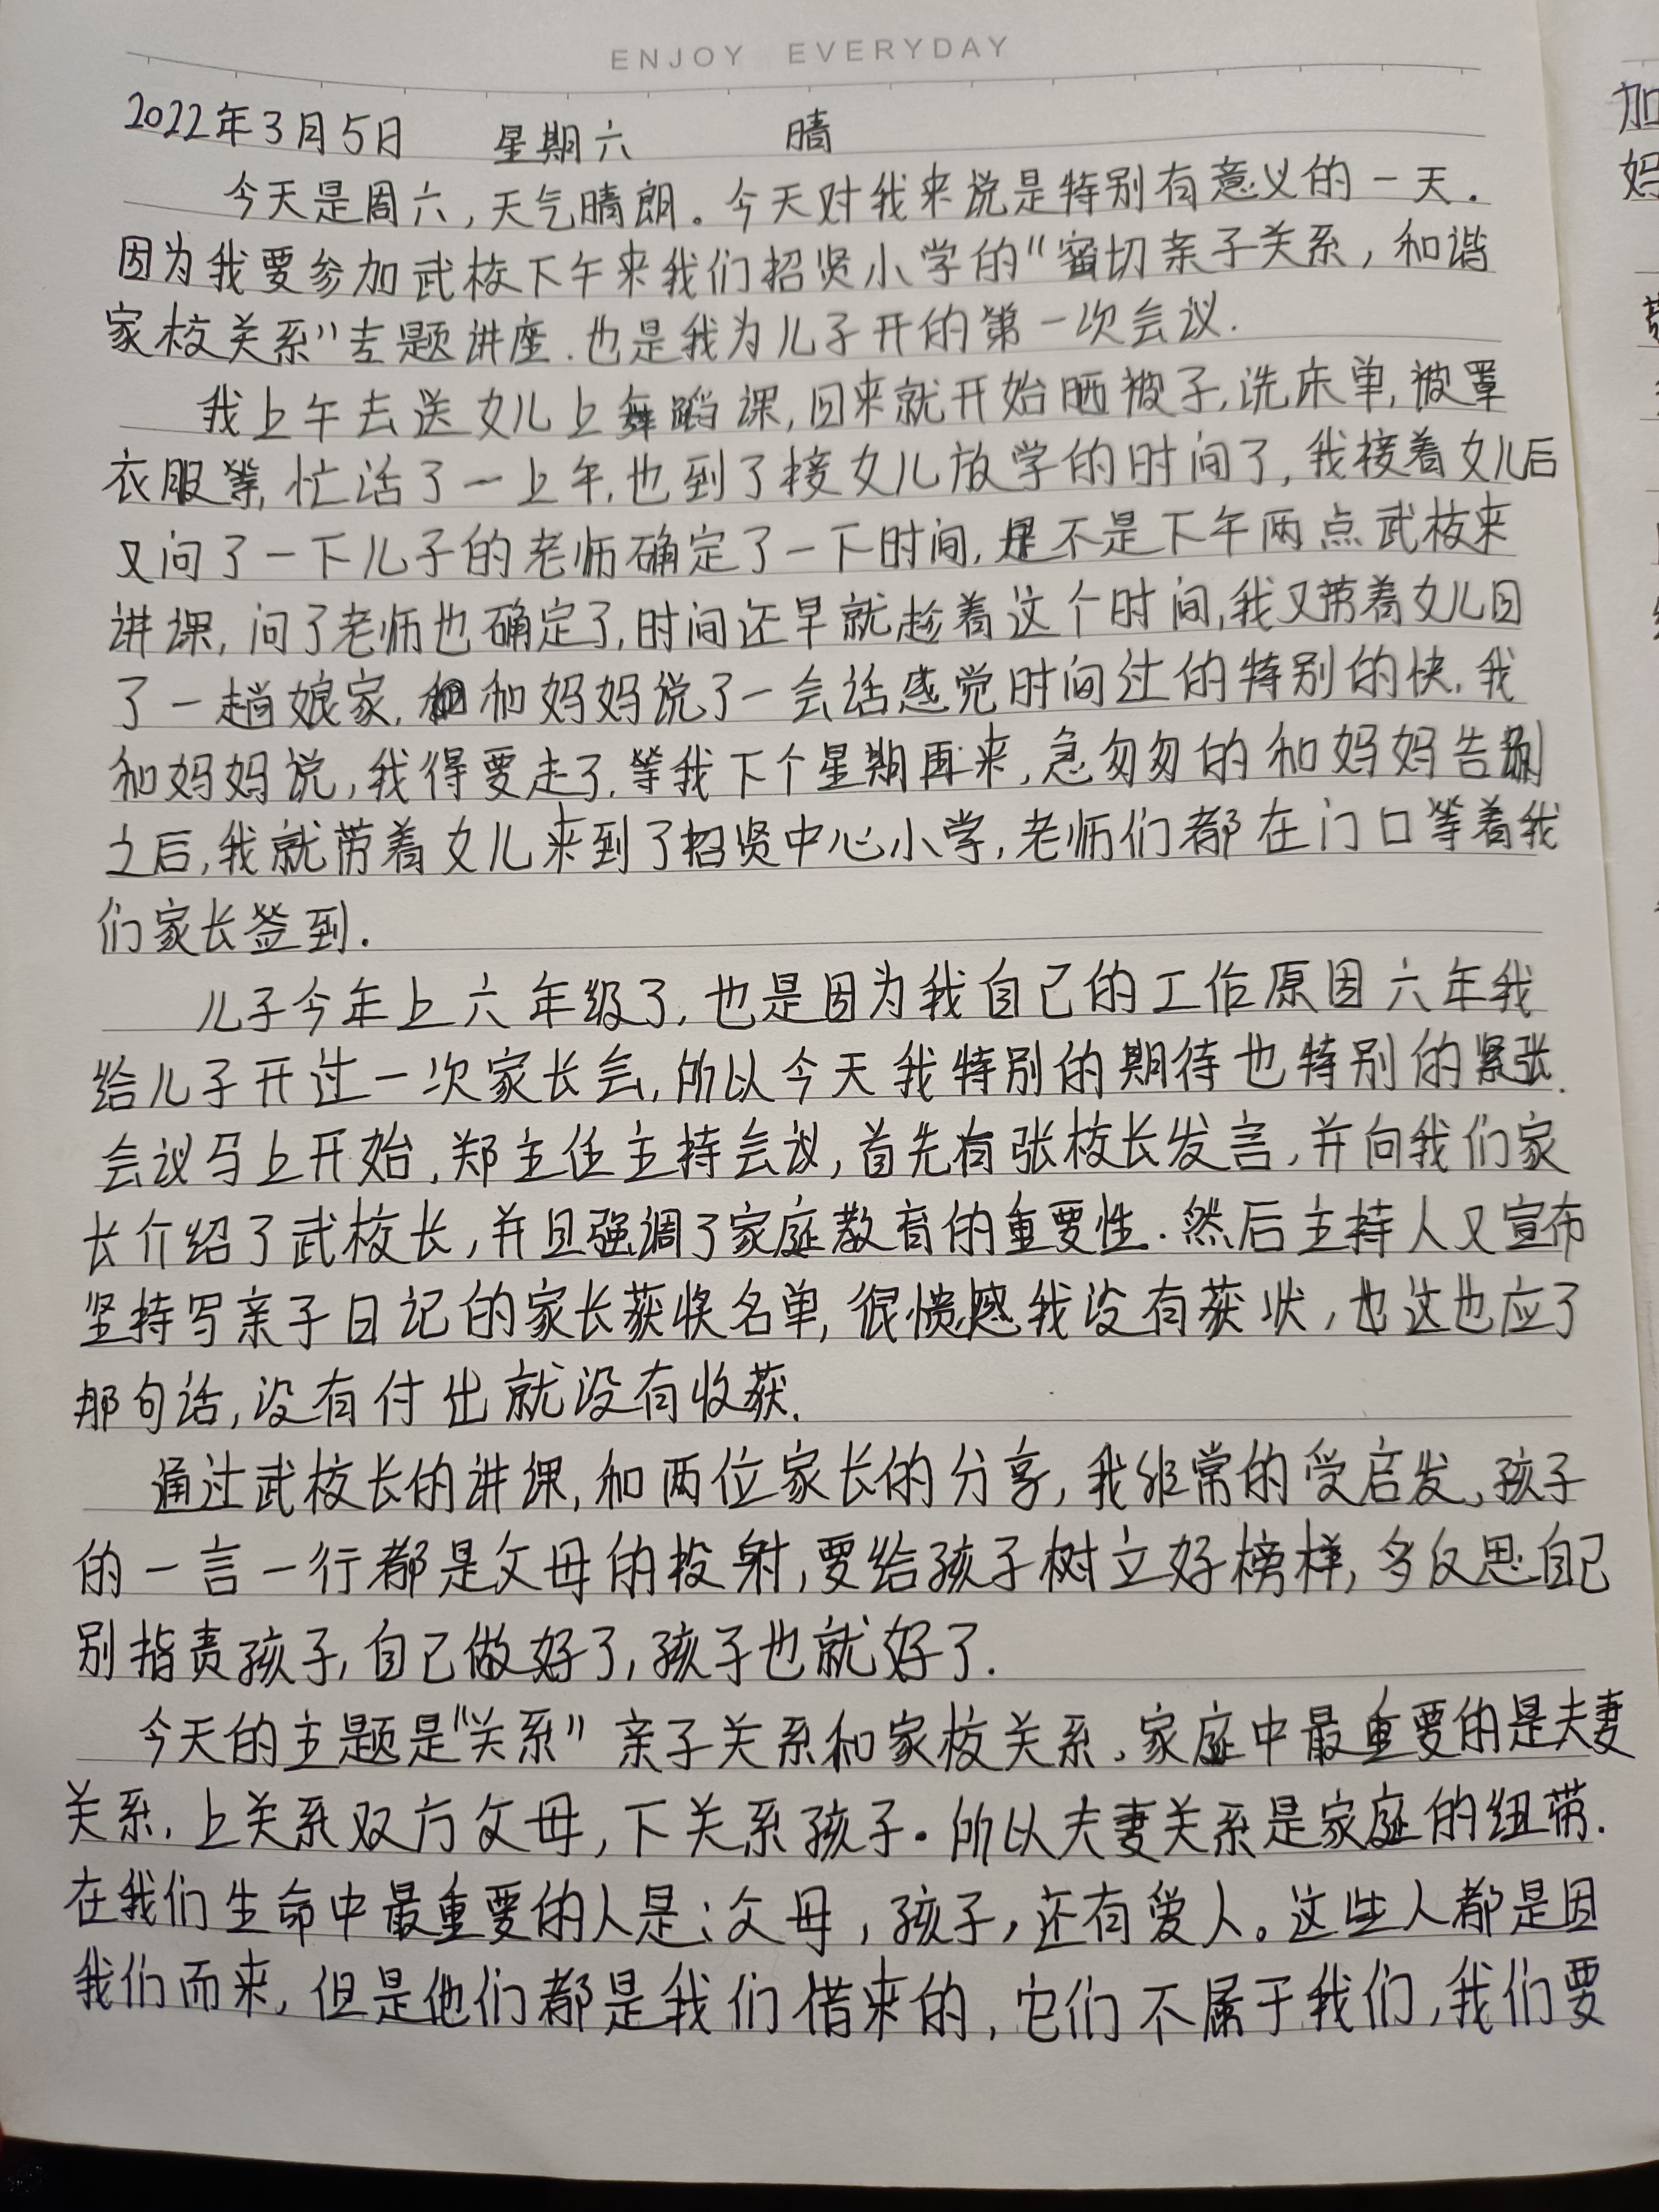 ENJOY EVERYDAY
2022年3月5日 星期六 晴
今天是周六,天气晴朗。今天对我来说是特别有意义的一天.
因为我要参加武校下午来我们招贤小学的“密切亲子关系,和谐
家校关系”专题讲座.也是我为儿子开的第一次会议.
我上午去送女儿上舞蹈课,回来就开始晒被子,洗床单,被罩
衣服等,忙活了一上午,也到了接女儿放学的时间了,我接着女儿后
又问了一下儿子的老师确定了一下时间,是不是下午两点武校来
讲课,问了老师也确定了,时间还早就趁着这个时间,我又带着女儿回
了一趟娘家,和妈妈说了一会话感觉时间过的特别的快,我
和妈妈说,我得要走了,等我下个星期再来,急匆匆的和妈妈告别
之后,我就带着女儿来到了招贤中心小学,老师们都在门口等着我
们家长签到.
儿子今年上六年级了,也是因为我自己的工作原因六年我
给儿子开过一次家长会,所以今天我特别的期待也特别的紧张.
会议马上开始,郑主任主持会议,首先有张校长发言,并向我们家
长介绍了武校长,并且强调了家庭教育的重要性.然后主持人又宣布
坚持写亲子日记的家长获奖名单,很愤憾我没有获状,也这也应了
那句话,没有付出就没有收获.
通过武校长的讲课,和两位家长的分享,我非常的受启发,孩子
的一言一行都是父母的投射,要给孩子树立好榜样,多反思自己
别指责孩子,自己做好了,孩子也就好了.
今天的主题是“关系”亲子关系和家校关系,家庭中最重要的是夫妻
关系,上关系双方父母,下关系孩子.所以夫妻关系是家庭的纽带.
在我们生命中最重要的人是:父母,孩子,还有爱人。这些人都是因
我们而来,但是他们都是我们借来的,它们不属于我们,我们要
加
妈